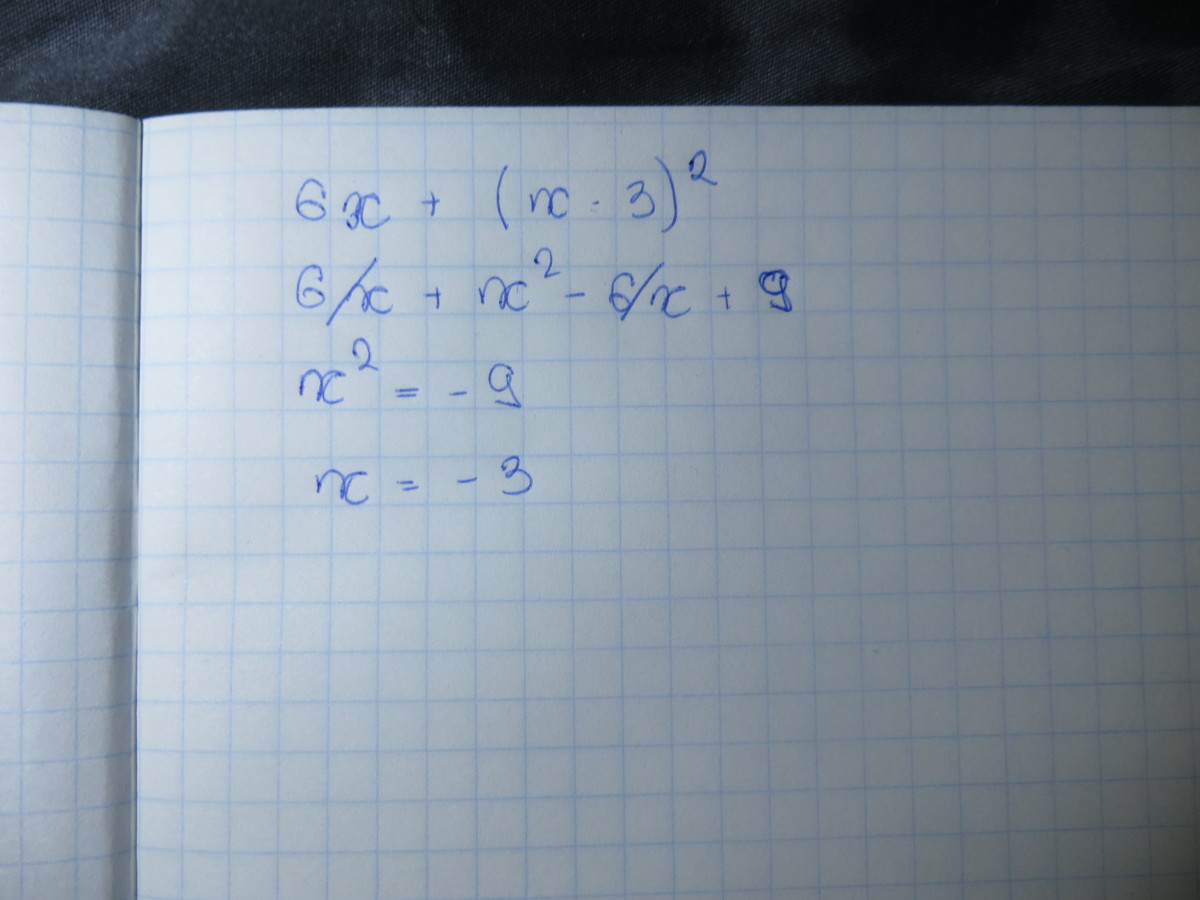 6x + (x - 3)²
6x + x² - 6x + 9
x² = - 9
x = - 3